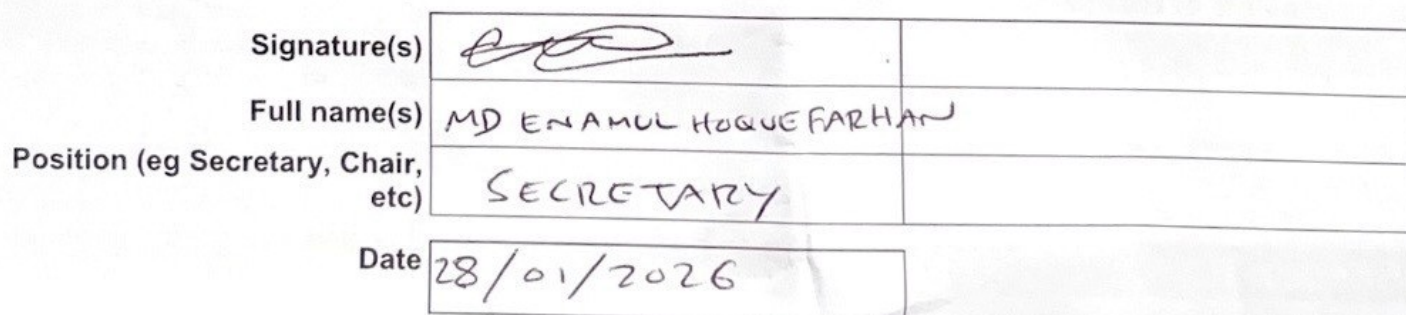 Signature(s)
Full name(s) MD ENAMUL HOQUE FARHAN
Position (eg Secretary, Chair,
etc) SECRETARY
Date 28/01/2026